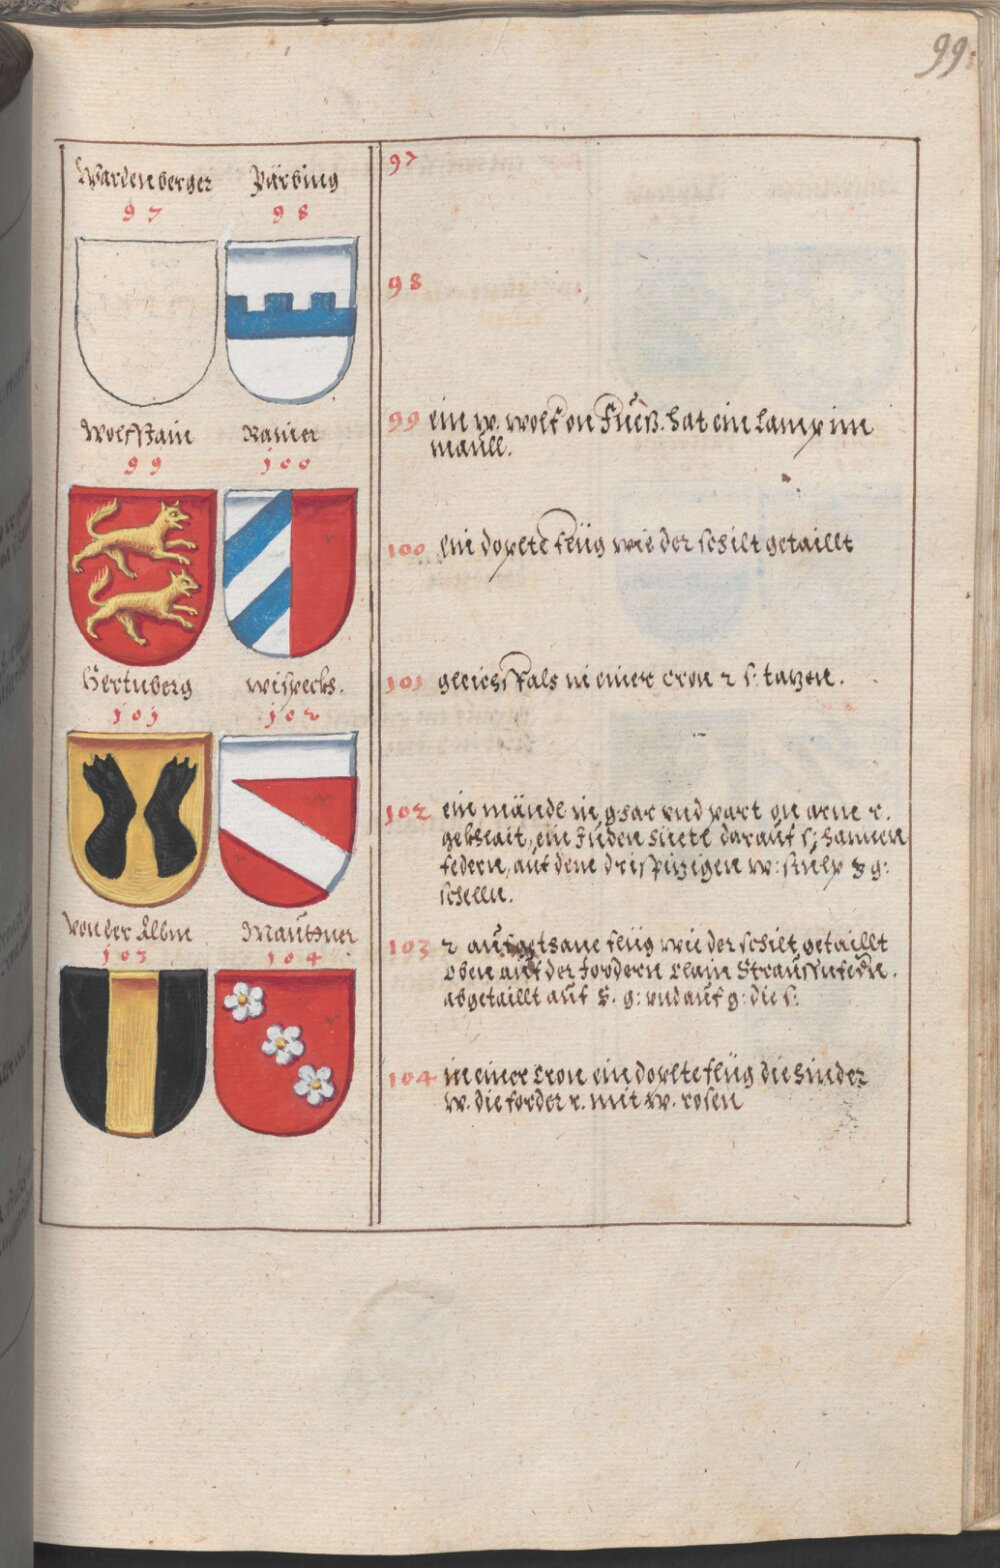 99.
Wardenberger Pärbing
97 98
Wolfstain Ranier
99 100
Hertnberg weispeckh.
101 102
Von der Albm Mautner
103 104
97
98
99 ein w. wolf on Füeß. hat ein lamp im
maull.
100 ein doplte flüg wie der schilt getaillt
101 gleichffals in einer cron 2 s. tatzen.
102 ein mändl in g. har vnd part on arm r.
geklait, ein Juden huett darauf s. hannen
federn, auf dem drispizigen w: g:
schelln.
103 2 aufgetsane flüg wie der schilt getaillt
oben auf der fordern klain Straussn federn.
abgetaillt auf s. g: vnd auf g: die s.
104 in einer Cron ein doplte flüg die hinder
w. die forder r. mit w. rosen